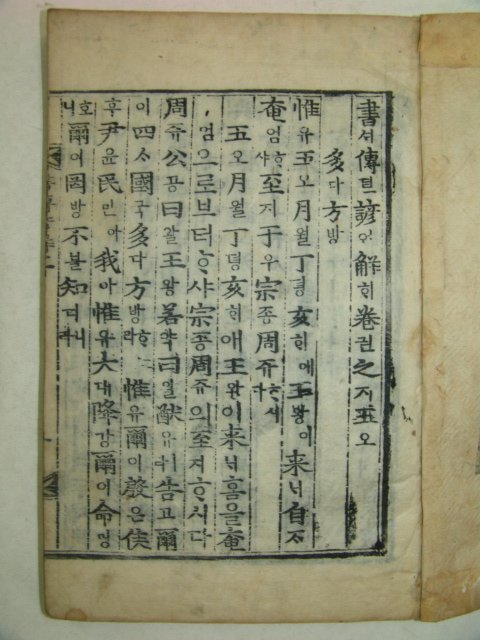 書셔傳뎐諺언解ᄒᆡ卷권之지五오
多다方방
惟유五오月월丁뎡亥ᄒᆡ예王왕이來ᄂᆡ自ᄌᆞ
奄엄ᄒᆞ샤至지于우宗종周쥬ᄒᆞ시다
五오月월丁뎡亥ᄒᆡ애王왕이來ᄂᆡ홈을奄
엄으로브터ᄒᆞ샤宗종周쥬의至지ᄒᆞ시다
周쥬公공曰왈王왕若약曰왈猷유ㅣ다告고爾
이四ᄉᆞ國국多다方방ᄒᆞ라惟유爾이殷은侯
후尹윤民민아我아惟유大대降강爾이命명
호니爾이罔망不블知디니라